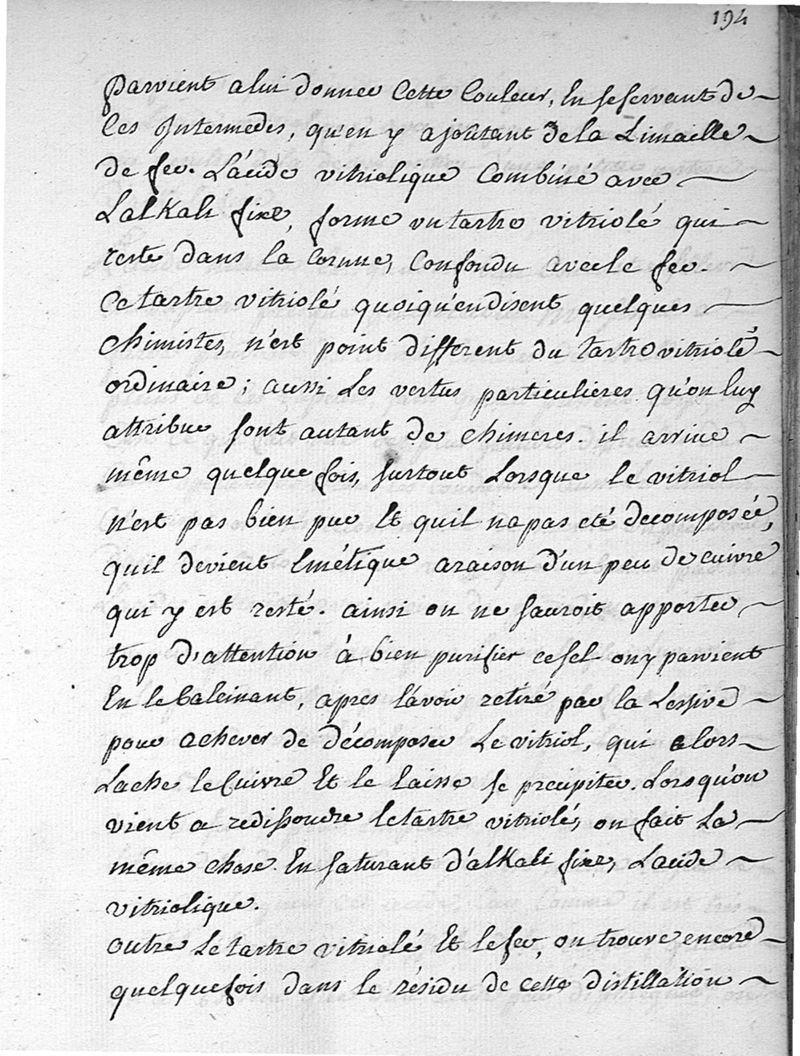 194
parvient a lui donner Cette Couleur, En se servant de
Ces Intermedes, qu'en y ajoutant de la Limaille
de fer. L'acide vitriolique Combiné avec
Lalkali fixe, forme un tartre vitriolé qui
reste dans la Cornue, Confondu avec le fer.
Ce tartre vitriolé quoiqu'en disent quelques
Chimistes, n'est point different du tartre vitriolé
ordinaire; aussi Les vertus particulieres qu'on luy
attribue sont autant de Chimeres. il arrive
même quelque fois, surtout Lorsque le vitriol
n'est pas bien pur Et quil na pas eté decomposée,
quil devient Emétique a raison d'un peu de cuivre
qui y est resté. ainsi on ne sauroit apporter
trop d'attention à bien purifier ce sel on y parvient
En le Calcinant, apres l'avoir retiré par la Lessive
pour achever de décomposer Le vitriol, qui alors
Lache le Cuivre Et le laisse se precipiter. Lorsqu'on
vient a redissoudre le tartre vitriolé, on fait La
même chose En saturant d'alkali fixe, L'acide
vitriolique.
outre Le tartre vitriolé Et le fer, on trouve encore
quelquefois dans le résidu de cette distillation